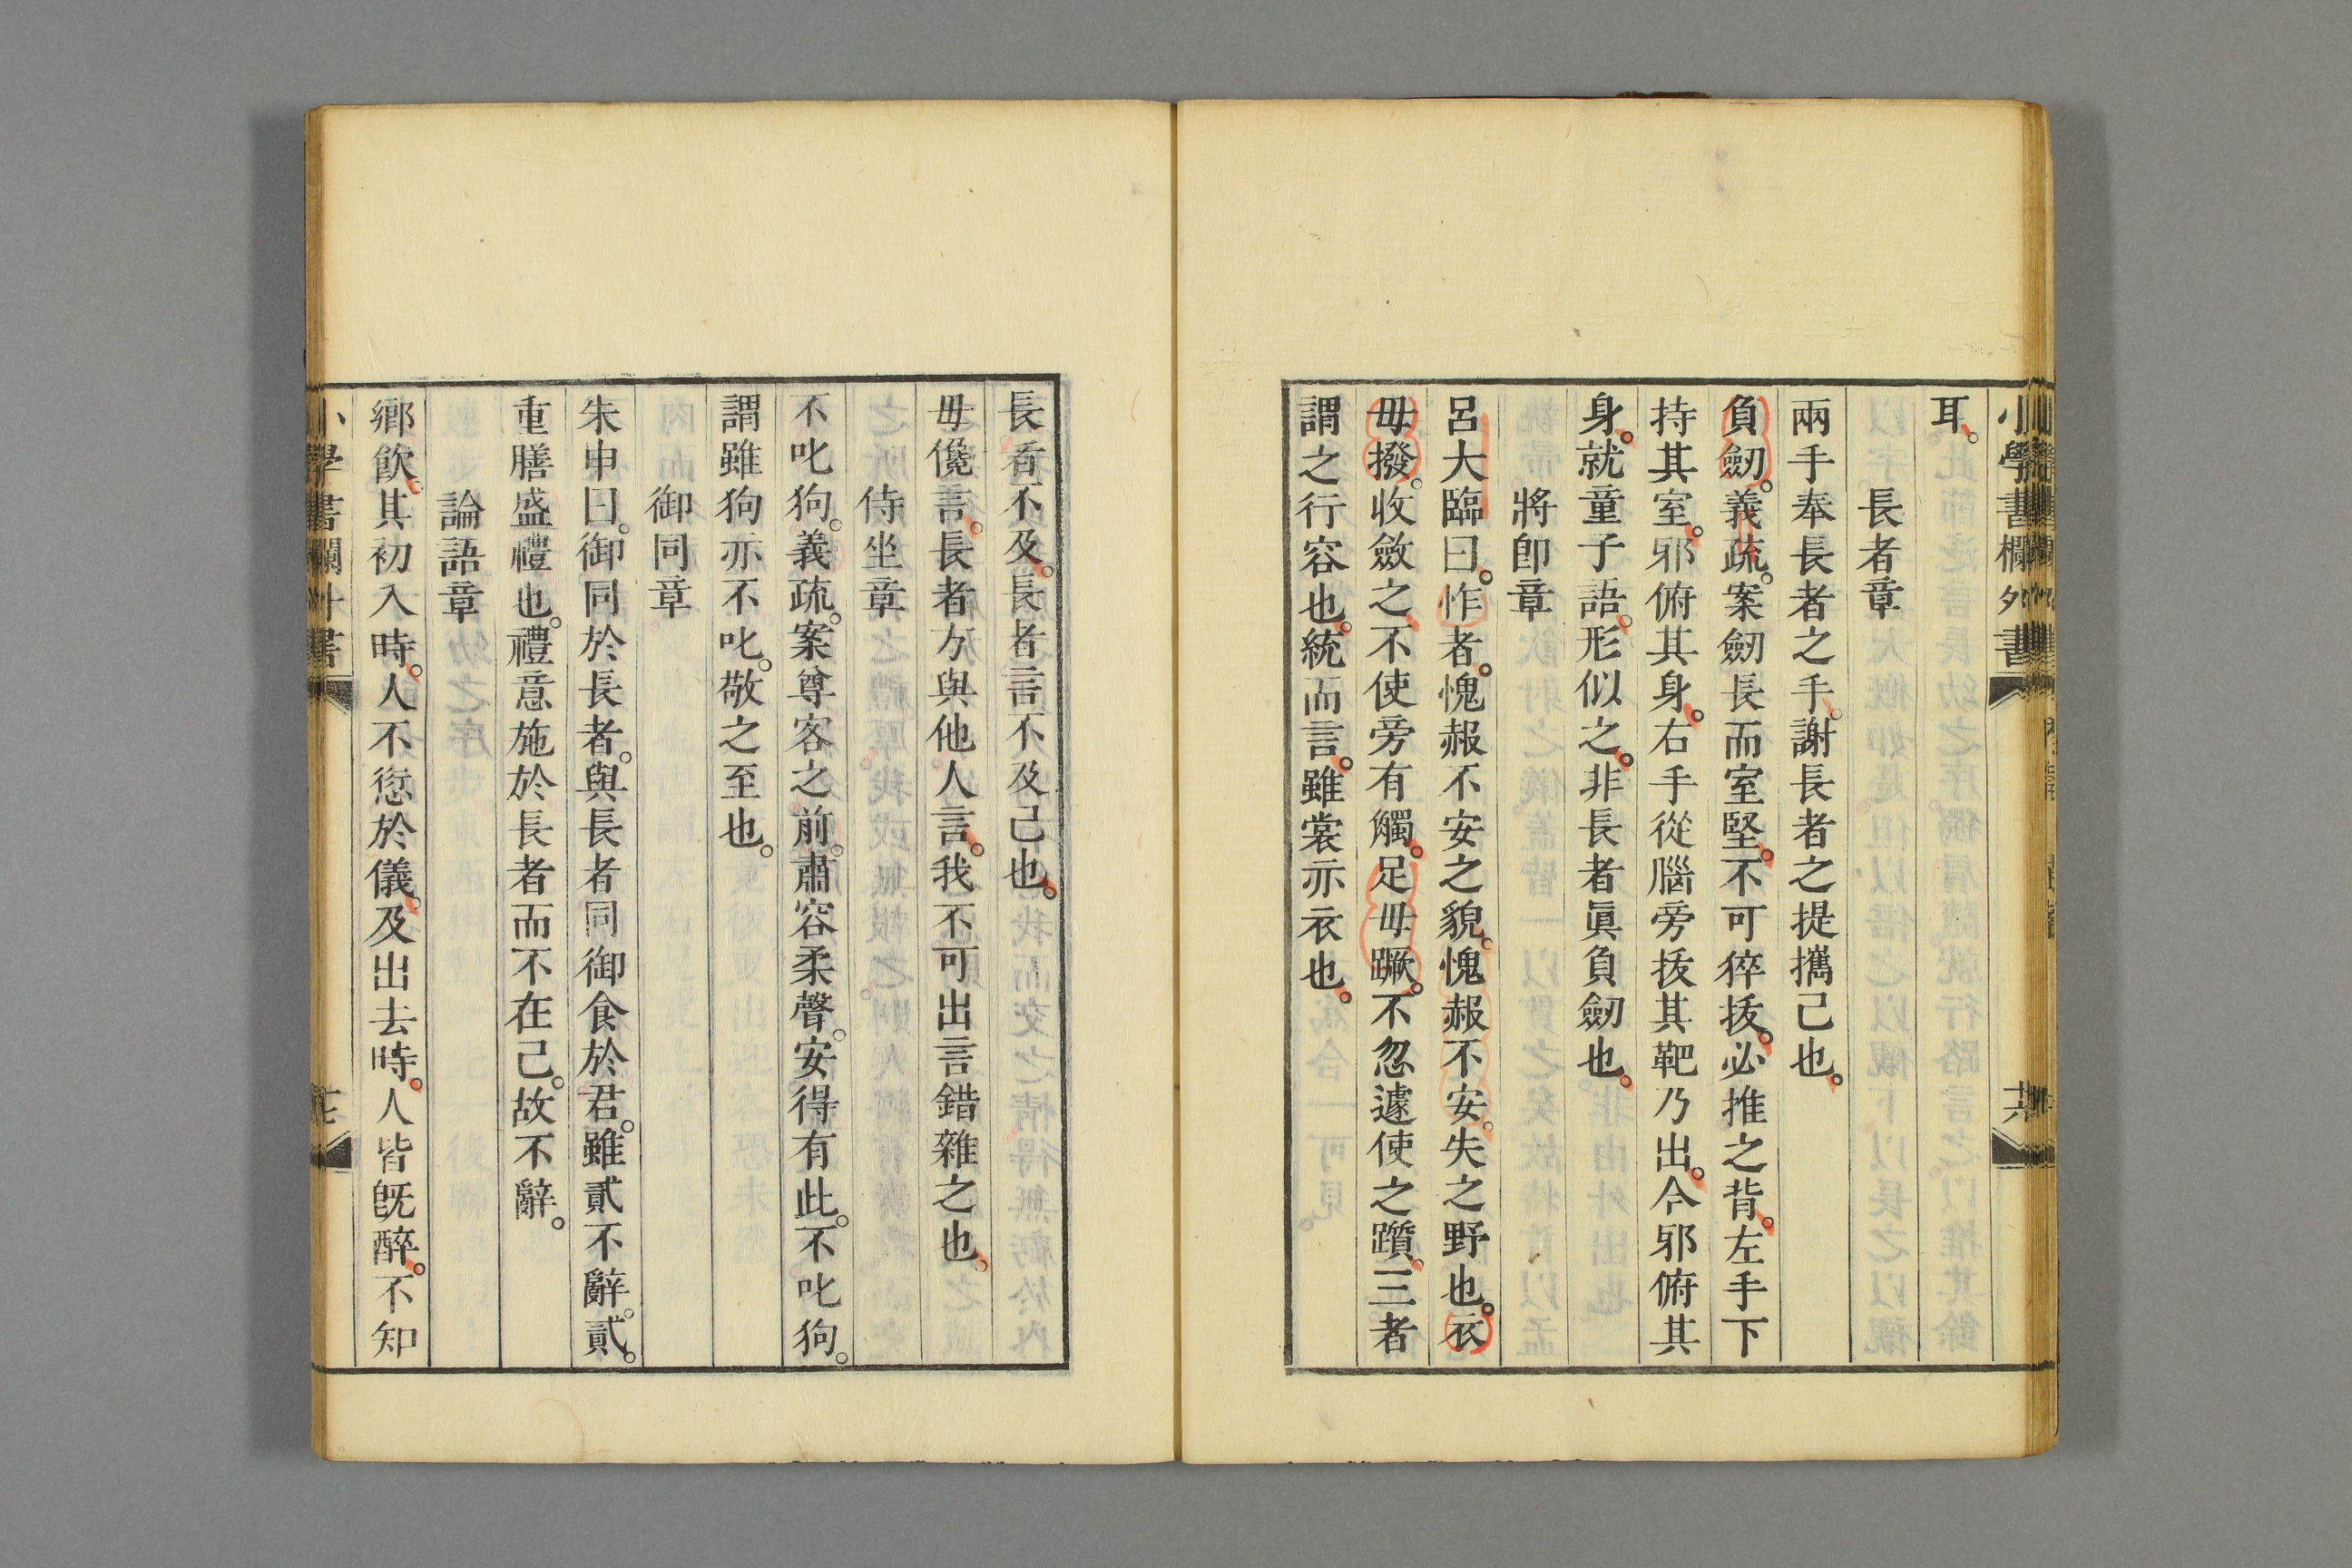 小學書欄外書
十六
耳。
長者章
兩手奉長者之手。謝長者之提攜己也。
負劒。義疏。案劒長而室堅。不可猝拔。必推之背。左手下
持其室。邪俯其身。右手從腦旁拔其靶乃出。今邪俯其
身。就童子語。形似之。非長者眞負劒也。
將卽章
呂大臨曰。怍者。愧赧不安之貌。愧赧不安。失之野也。衣
毋撥。收斂之。不使旁有觸。足毋蹶。不忽遽使之躓。三者
謂之行容也。統而言。雖裳亦衣也。
長者不及。長者言不及己也。
毋儳言。長者方與他人言。我不可出言錯雜之也。
侍坐章
不叱狗。義疏。案尊客之前。肅容柔聲。安得有此。不叱狗。
謂雖狗亦不叱。敬之至也。
御同章
朱申曰。御同於長者。與長者同御食於君。雖貳不辭。貳。
重膳盛禮也。禮意施於長者而不在己。故不辭。
論語章
鄉飮。其初入時。人不愆於儀。及出去時。人皆旣醉。不知
小學書欄外書